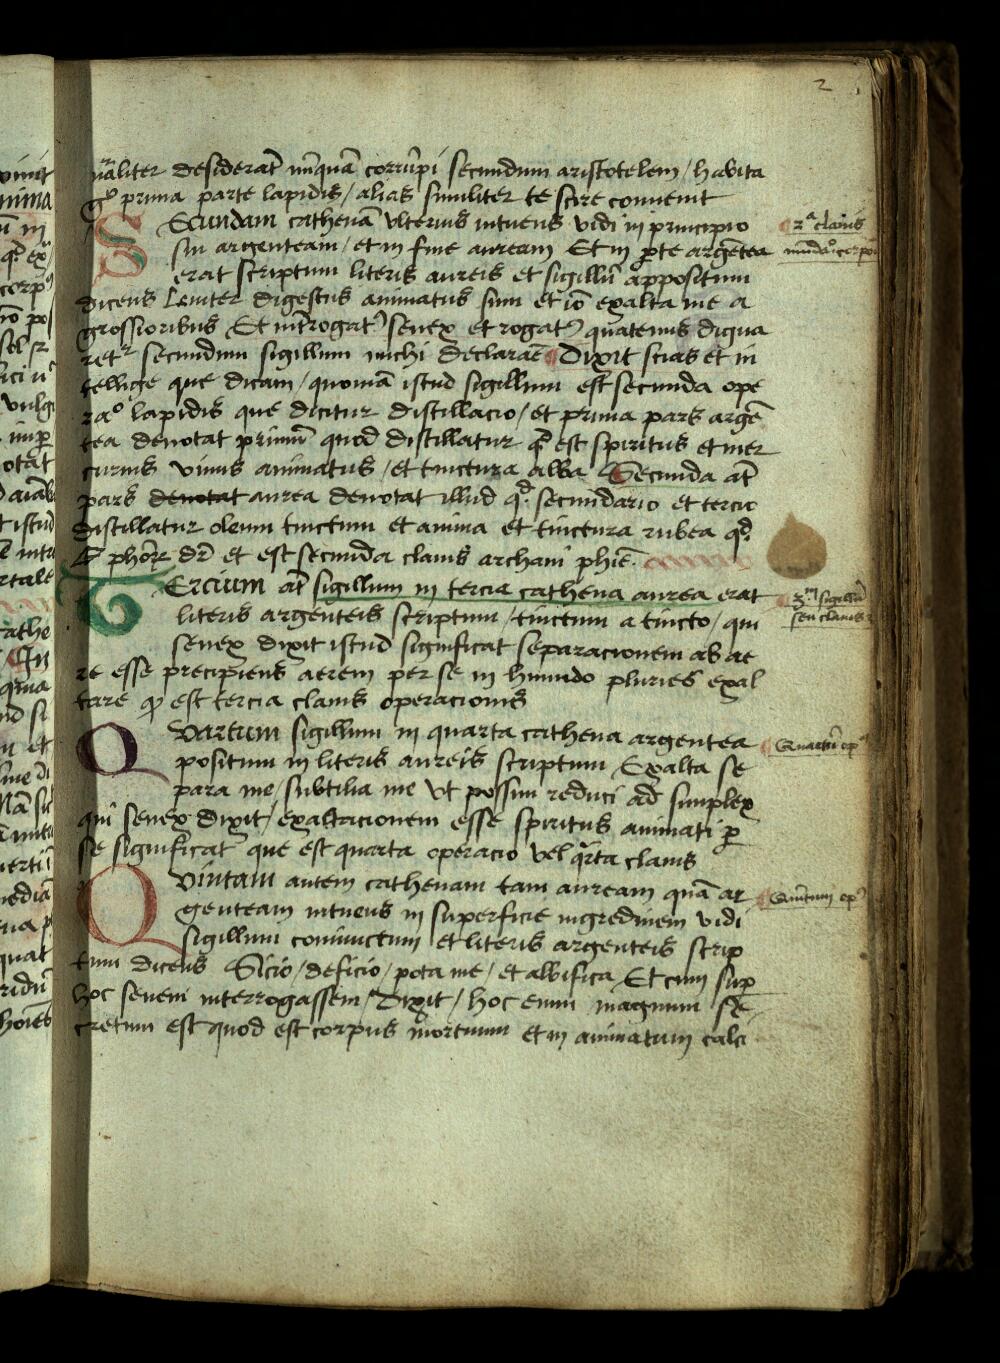 2
naliter desiderat nūquā corrūpi secundum aristotelem / habita
gͦ prima parte lapidis / alias similiter te scire convenit
SEcundam cathenā ulterius intuens vidi in principio
sui argenteam / et in fine auream Et in pte argētea
erat scriptum literis aureis et sigillū appositum
dicens Leniter digestus animatus sum et iō exalta me a
grossioribus Et introgat senex et rogat quatenus digna
ret secundum sigillum michi declarare Dixit scias et in
tellige que dicam / quoniā istud sigillum est secunda ope
raͦ lapidis que dicitur distillacio / et prima pars argē
tea denotat primū quod distillatur qd est spiritus et mer
curius vivus animatus / et tinctura alba Secunda at
pars denotat aurea denotat illud qd secundario et tercio
distillatur oleum tinctum et anima et tinctura rubea qd
phōr dr et est secunda clavis archani phie.
TErcium at sigillum in tercia cathena aurea erat
literis argenteis scriptum / tinctum a tincto / qui
senex dixit istud significat separacionem ab ae
re esse precipiens aerem per se in humido pluries exal
tare qd est tercia clavis operacionis
QVartum sigillum in quarta cathena argentea
positum in literis aureis scriptum Exalta se
para me / subtilia me ut possim reduci ad simplex
qui senex dixit / exaltacionem esse spiritus animati p
se significat que est quarta operacio vel qrta clavis
QVintam autem cathenam tam auream quā ar
genteam intuens in superficie ingredinem vidi
sigillum coniunctum et literis argenteis scrip
tum dicens Sicio / deficio / pota me / et albifica Et cum sup
hoc senem interrogassem / Dixit / hoc enim magnum se
cretum est quod est corpus mortuum et in animatum calci
2ᵃ clavis
3ᵐ sigillū
seu clavis
Quartū op
Quintum op